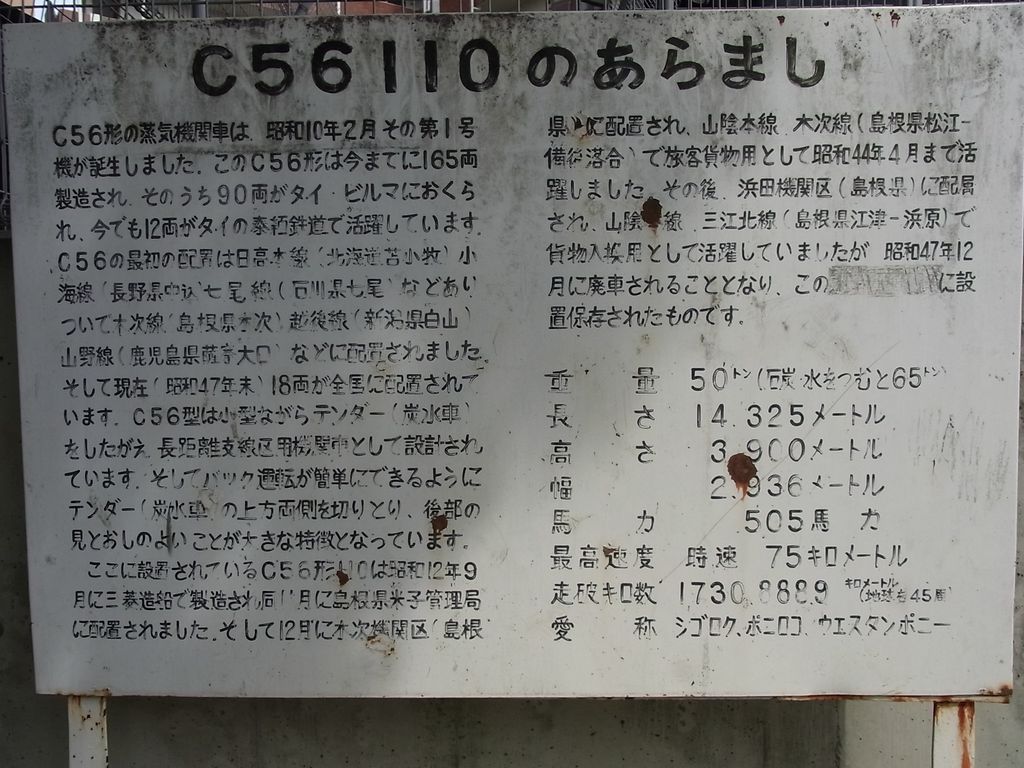 C56110のあらまし
C56形の蒸気機関車は、昭和10年2月その第1号
機が誕生しました。このC56形は今までに165両
製造され、そのうち90両がタイ・ビルマにおくら
れ、今でも12両がタイの泰緬鉄道で活躍しています。
C56の最初の配置は日高本線(北海道苫小牧)小
海線(長野県中込)七尾線(石川県七尾)などあり
ついで木次線(島根県木次)越後線(新潟県白山)
山野線(鹿児島県薩摩大口)などに配置されました。
そして現在(昭和47年末)18両が全国に配置されて
います。C56型は小型ながらテンダー(炭水車)
をしたがえ、長距離支線区用機関車として設計され
ています。そしてバック運転が簡単にできるように
テンダー(炭水車)の上方両側を切りとり、後部の
見とおしのよいことが大きな特徴となっています。
ここに設置されているC56形110は昭和12年9
月に三菱造船で製造され同11月に島根県米子管理局
に配置されました。そして12月に木次機関区(島根
県)に配置され、山陰本線、木次線(島根県松江−
備後落合)で旅客貨物用として昭和44年4月まで活
躍しました。その後、浜田機関区(島根県)に配属
され、山陰 線、三江北線(島根県江津−浜原)で
貨物入換用として活躍していましたが、昭和47年12
月に廃車されることとなり、この に設
置保存されたものです。
重量 50トン(石炭・水をつむと65トン)
長さ 14.325メートル
高さ 3.900メートル
幅 2.936メートル
馬力 505馬力
最高速度 時速 75キロメートル
走破キロ数 1730.888.9キロメートル(地球を45周)
愛称 シゴロク、ポニロコ、ウエスタンポニー